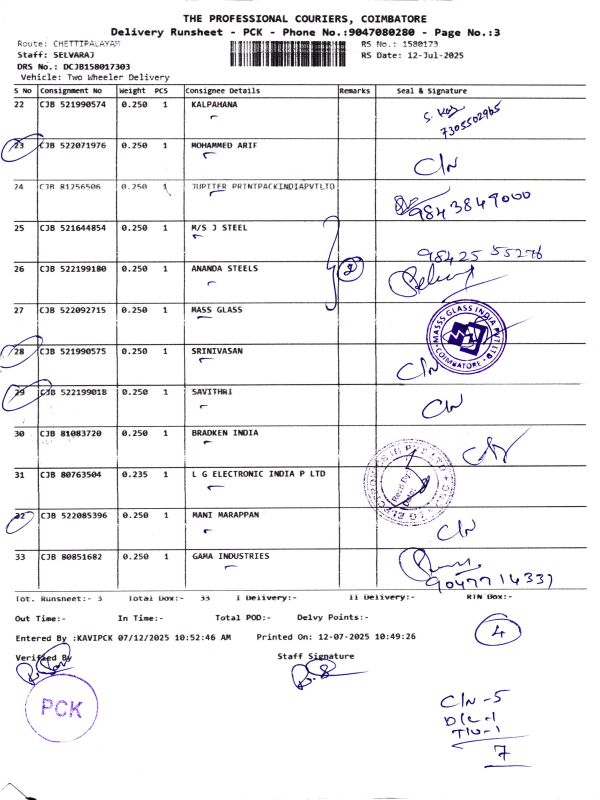 THE PROFESSIONAL COURIERS, COIMBATORE
Delivery Runsheet - PCK - Phone No.:9047080280 - Page No.:3
Route: CHETTIPALAYAM RS No.: 1580173
Staff: SELVARAJ RS Date: 12-Jul-2025
DRS No.: DCJB158017303
Vehicle: Two Wheeler Delivery
S No Consignment No Weight PCS Consignee Details Remarks Seal & Signature
22 CJB 521990574 0.250 1 KALPAHANA
7305502965
23 CJB 522071976 0.250 1 MOHAMMED ARIF C/N
24 CJB 81256506 0.250 1 JUPITER PRINTPACKINDIAPVTLTD 9843849000
25 CJB 521644854 0.250 1 M/S J STEEL 98425 55276
26 CJB 522199180 0.250 1 ANANDA STEELS 2
27 CJB 522092715 0.250 1 MASS GLASS MASSS GLASS INDIA PVT LTD COIMBATORE
28 CJB 521990575 0.250 1 SRINIVASAN C/N
29 CJB 522199018 0.250 1 SAVITHRI C/N
30 CJB 81083720 0.250 1 BRADKEN INDIA
31 CJB 80763504 0.235 1 L G ELECTRONIC INDIA P LTD
32 CJB 522085396 0.250 1 MANI MARAPPAN C/N
33 CJB 80851682 0.250 1 GAMA INDUSTRIES
Tot. Runsheet:- 3 Total Dox:- 33 I Delivery:- II Delivery:- RTN Dox:-
Out Time:- In Time:- Total POD:- Delvy Points:- 4
Entered By :KAVIPCK 07/12/2025 10:52:46 AM Printed On: 12-07-2025 10:49:26
Verified By Staff Signature
PCK
C/N -5
D/L -1
7